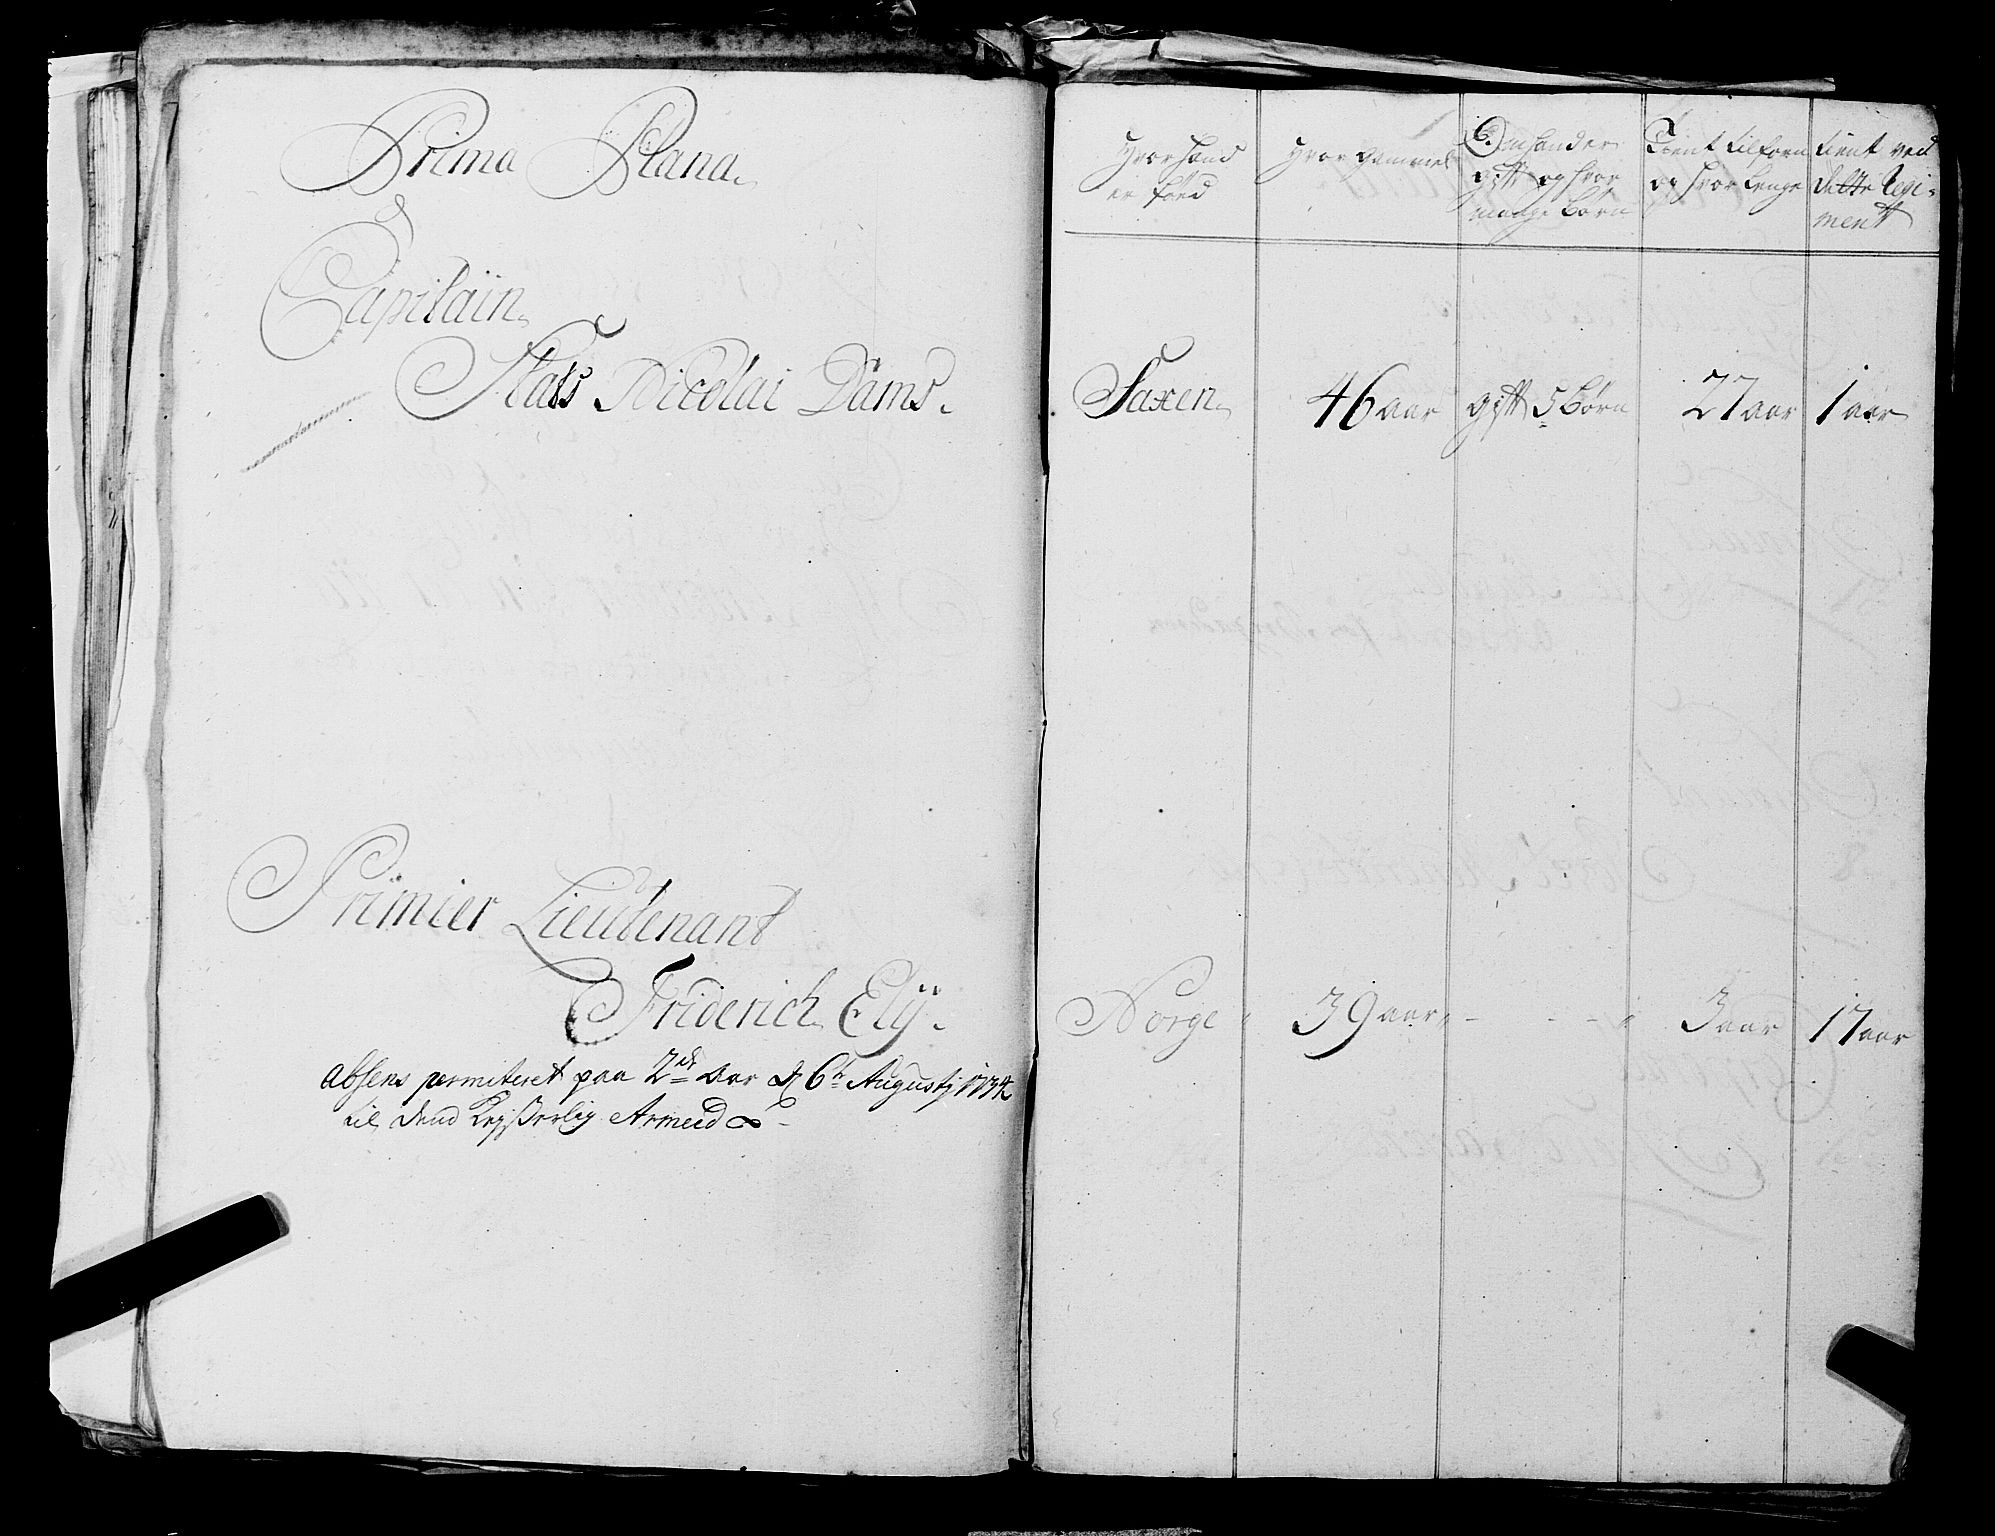 Prima Plana.
Capitaiin.
Stats Nicolai Dams.
Primier Lieutenant
Friderich Elÿ.
absens permiteret paa 2de Aar d 6te Augustj 1734
til dend Keÿserlig Armeed
Hvor hand
er fæd
Hvor gammel
Om hand er
gift og hvor
mange børn
Tient tilforn
og hvor lenge
tient ved
dette Regi-
ment
Saxen.
46 aar
gift 5 børn
27 aar
1 aar
Norge
39 aar
3 aar
17 aar